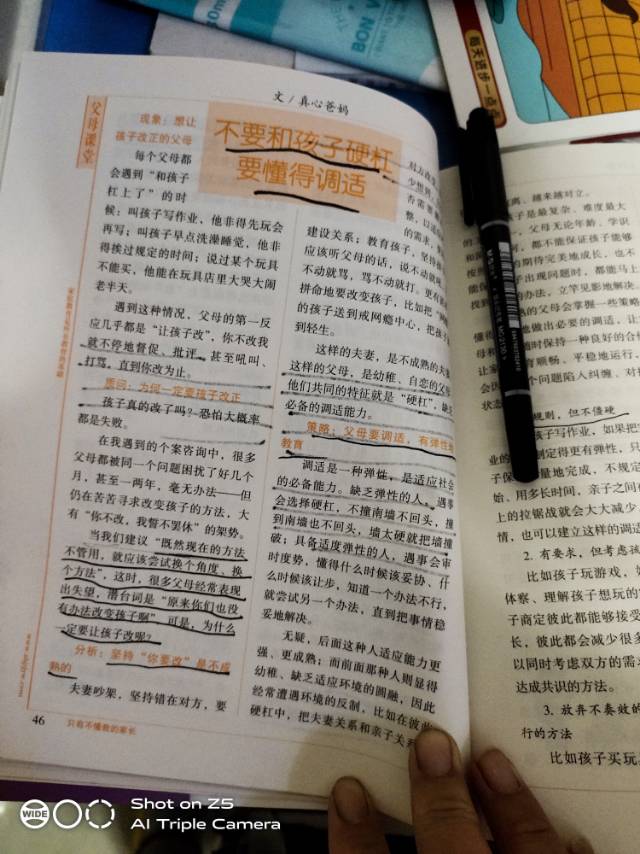 父母课堂
文/真心爸妈
不要和孩子硬杠
要懂得调适
现象：想让
孩子改正的父母
每个父母都
会遇到“和孩子
杠上了”的时
候：叫孩子写作业，他非得先玩会
再写；叫孩子早点洗澡睡觉，他非
得挨过规定的时间；说过某个玩具
不能买，他能在玩具店里大哭大闹
老半天。
遇到这种情况，父母的第一反
应几乎都是“让孩子改”，你不改我
就不停地督促、批评，甚至吼叫、
打骂，直到你改为止。
质问：为何一定要孩子改正
孩子真的改了吗？恐怕大概率
都是失败。
在我遇到的个案咨询中，很多
父母都被同一个问题困扰了好几个
月，甚至一两年，毫无办法——但
仍在苦苦寻求改变孩子的方法，大
有“你不改，我誓不罢休”的架势。
当我们建议“既然现在的方法
不管用，就应该尝试换个角度、换
个方法”，这时，很多父母经常表现
出失望，潜台词是“原来你们也没
有办法改变孩子啊”。可是，为什么
一定要让孩子改呢？
分析：坚持“你要改”是不成
熟的
夫妻吵架，坚持错在对方，要
建设关系；教育孩子，坚持
应该听父母的话，说不动就
不动就骂，骂不动就打。更有
拼命地要改变孩子，比如把“网
的孩子送到戒网瘾中心，把孩子
到轻生。
这样的夫妻，是不成熟的夫妻
这样的父母，是幼稚、自恋的父母
他们共同的特征就是“硬杠”，缺乏
必备的调适能力。
策略：父母要调适，有弹性地
教育
调适是一种弹性，是适应社会
的必备能力。缺乏弹性的人，遇事
会选择硬杠，不撞南墙不回头，撞
到南墙也不回头，墙太硬就把墙撞
破；具备适度弹性的人，遇事会审
时度势，懂得什么时候该妥协、什
么时候该让步，知道一个办法不行，
就尝试另一个办法，直到把事情稳
妥地解决。
无疑，后面这种人适应能力更
强、更成熟；而前面那种人则显得
幼稚、缺乏适应环境的圆融，因此
经常遭遇环境的反制。比如在彼此
硬杠中，把夫妻关系和亲子关系
46
只有不懂教的家长
越来越对立。
子是最复杂、难度最大
，父母无论年龄、学识
，都不能保证孩子能够
期待完美地成长，也不
出现问题时，都能马上
的办法，立竿见影地解决。
的父母会掌握一些策略
地做出必要的调适，让
随时保持一种良好的合
有顺畅、平稳地运行。
个问题陷入纠缠、对
规则，但不僵硬
孩子写作业，如果把
制定得更有弹性，只
量地完成，不规定
始、用多长时间，亲子之间
上的拉锯战就会大大减少
情，也可以建立这样的调适
2. 有要求，但考虑孩
比如孩子玩游戏，
体察、理解孩子想玩的
子商定彼此都能够接受
长，彼此都会减少很多
以同时考虑双方的需
达成共识的方法。
3. 放弃不奏效的
行的方法
比如孩子买玩
每天进步一点点
BON V
WIDE
Shot on Z5
AI Triple Camera